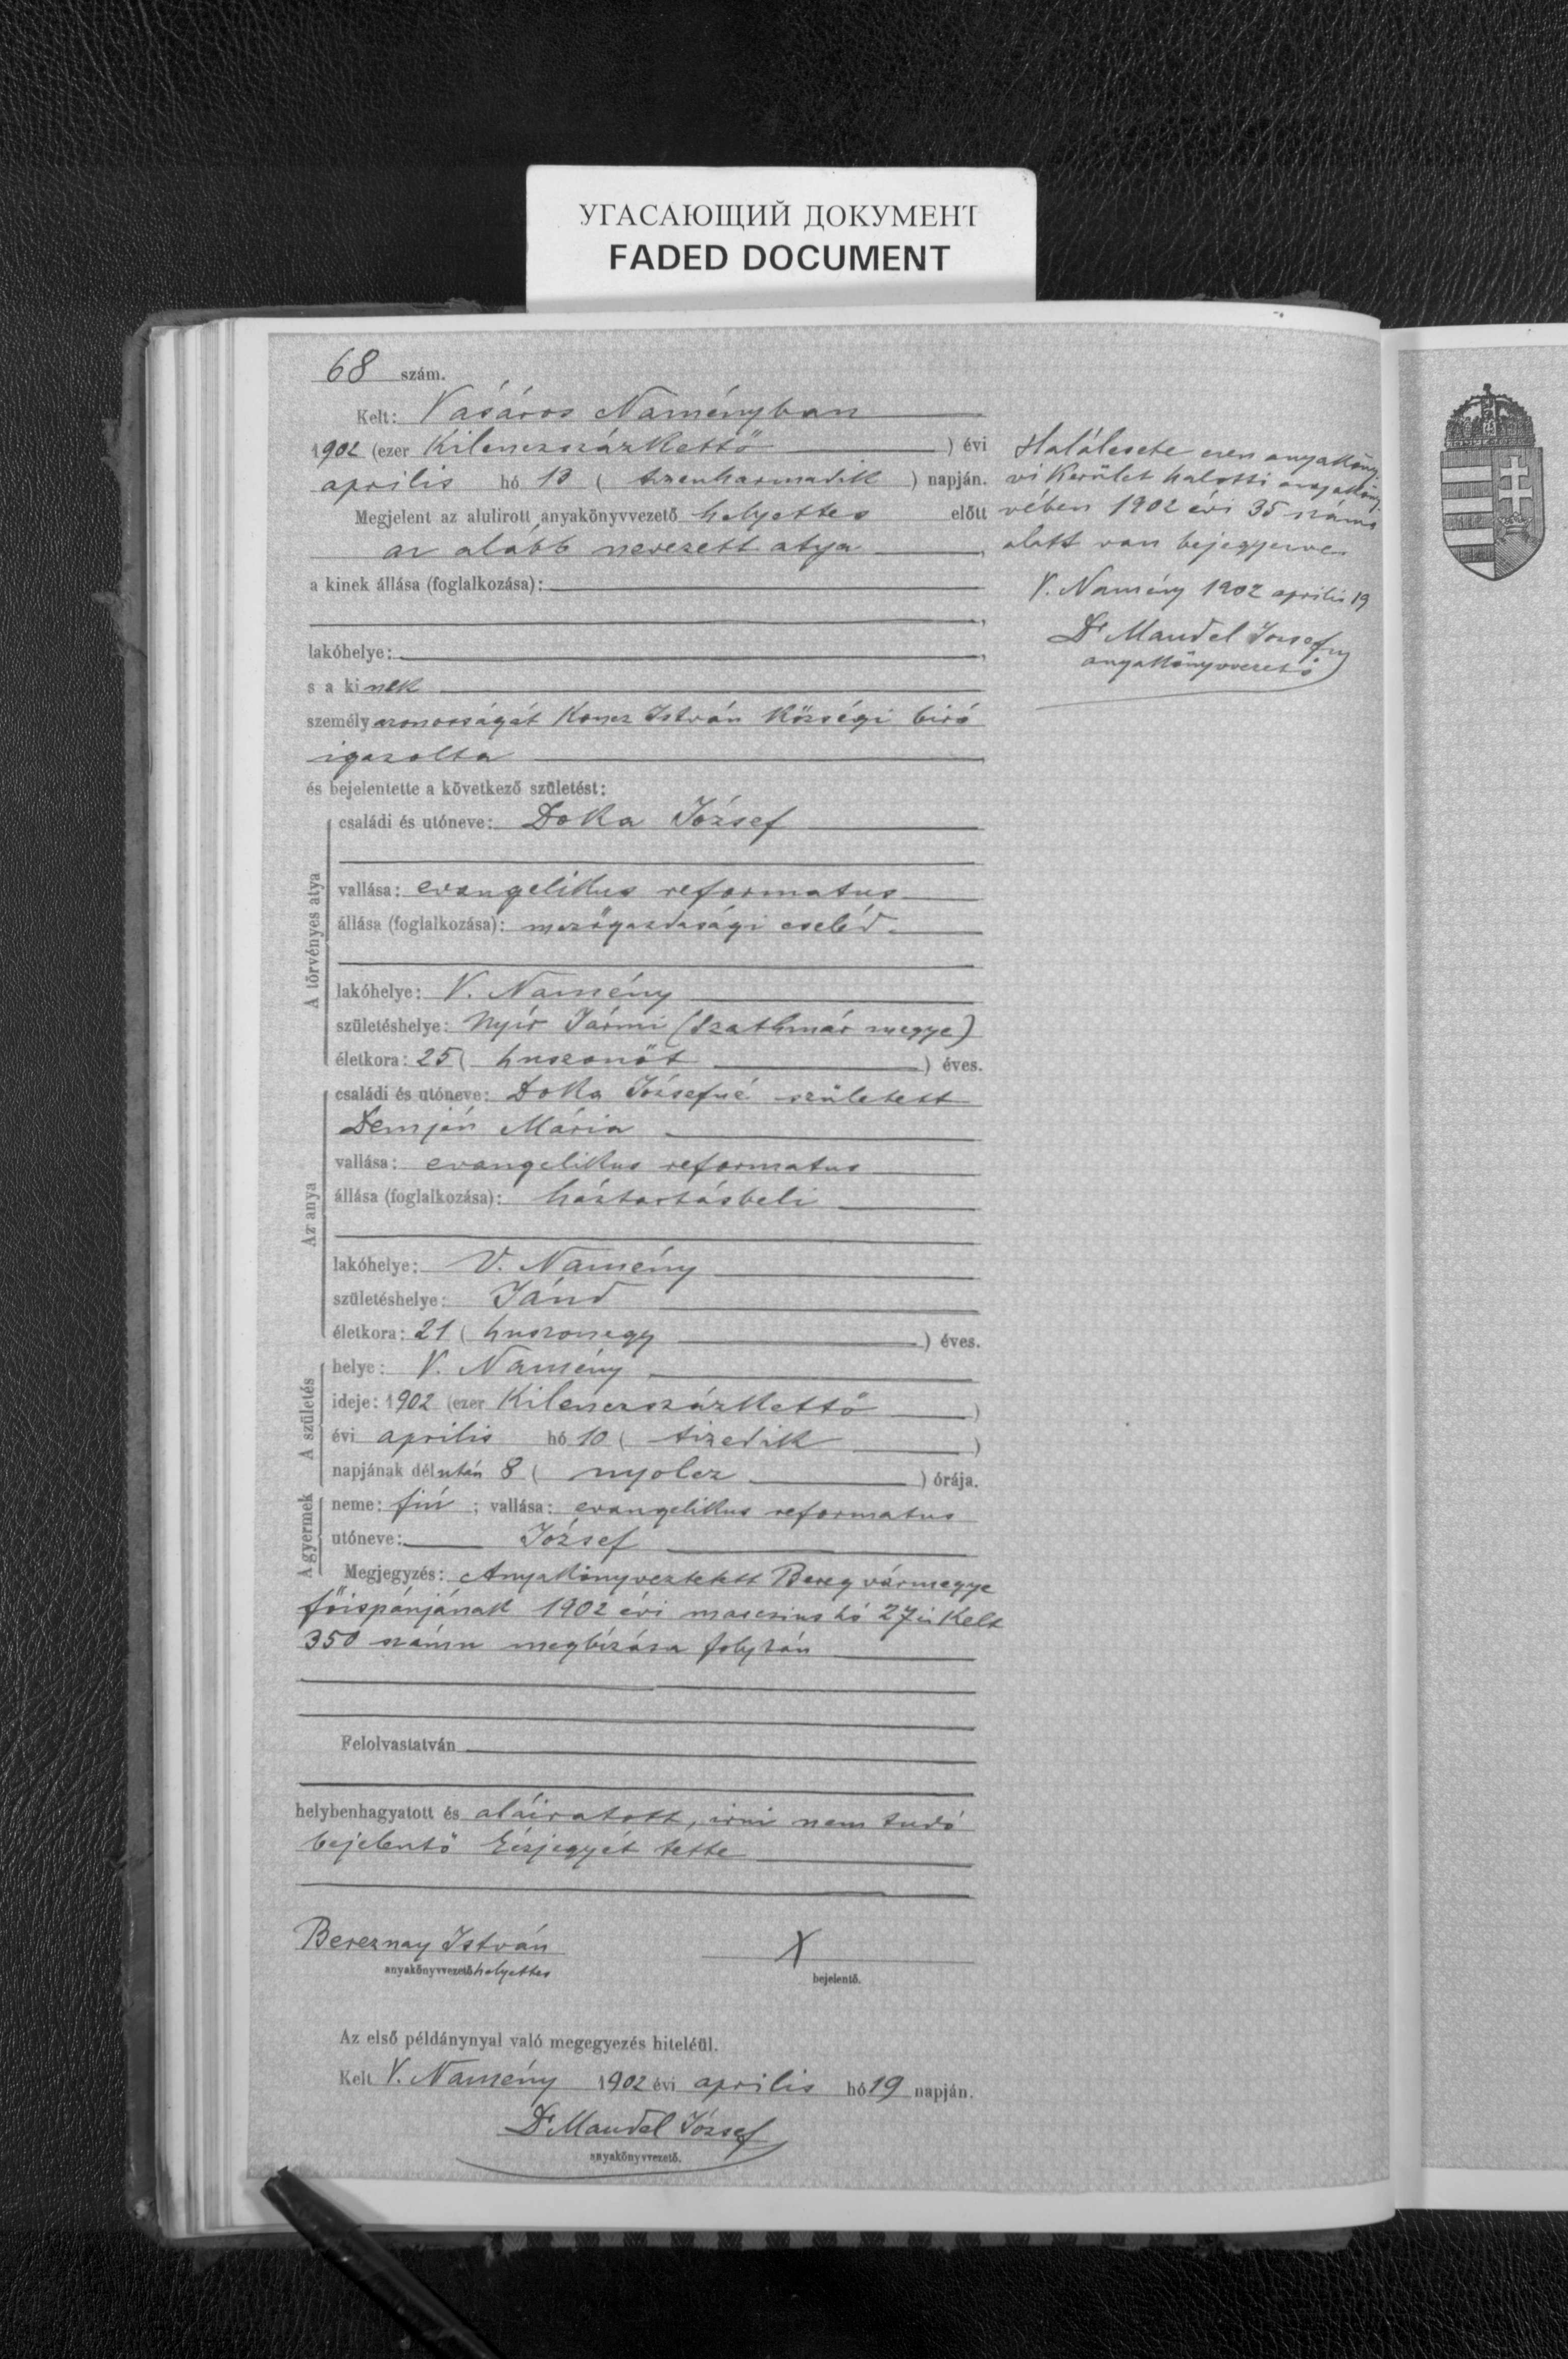 УГАСАЮЩИЙ ДОКУМЕНТ
FADED DOCUMENT
68 szám.
Kelt: Vásáros Naményban
1902 (ezer Kilenczszázkettő ) évi
aprilis hó 13 ( tizenharmadik ) napján.
Megjelent az alulirott anyakönyvvezető helyettes előtt
az alább nevezett atya,
a kinek állása (foglalkozása):
lakóhelye:
s a kinek
személyazonosságát Koncz István községi biró
igazolta
és bejelentette a következő születést:
A törvényes atya
családi és utóneve: Doka József
vallása: evangelikus reformatus
állása (foglalkozása): mezőgazdasági cseléd.
lakóhelye: V. Namény
születéshelye: Nyír Jármi (Szathmár megye)
életkora: 25 ( huszonöt ) éves.
Az anya
családi és utóneve: Doka Józsefné született
Demján Mária
vallása: evangelikus reformatus
állása (foglalkozása): háztartásbeli
lakóhelye: V. Namény
születéshelye: Jánd
életkora: 21 ( huszonegy ) éves.
A születés
helye: V. Namény
ideje: 1902 (ezer Kilenczszázkettő )
évi aprilis hó 10 ( tizedik )
napjának délután 8 ( nyolcz ) órája.
A gyermek
neme: fiú ; vallása: evangelikus reformatus
utóneve: József
Megjegyzés: Anyakönyveztetett Bereg vármegye
főispánjának 1902 évi marczius hó 27 én kelt
350 számu megbízása folytán
Felolvastatván
helybenhagyatott és aláiratott, irni nem tudó
bejelentő kézjegyét tette
Bereznay István
anyakönyvvezető helyettes
X
bejelentő.
Az első példánynyal való megegyezés hiteléül.
Kelt V. Namény 1902 évi aprilis hó 19 napján.
Dr Mandel József
anyakönyvvezető.
Halálesete ezen anyaköny
vi kerület halotti anyaköny
vében 1902 évi 35 száma
alatt van bejegyezve.
V. Namény 1902 aprilis 19
Dr Mandel József
anyakönyvvezető